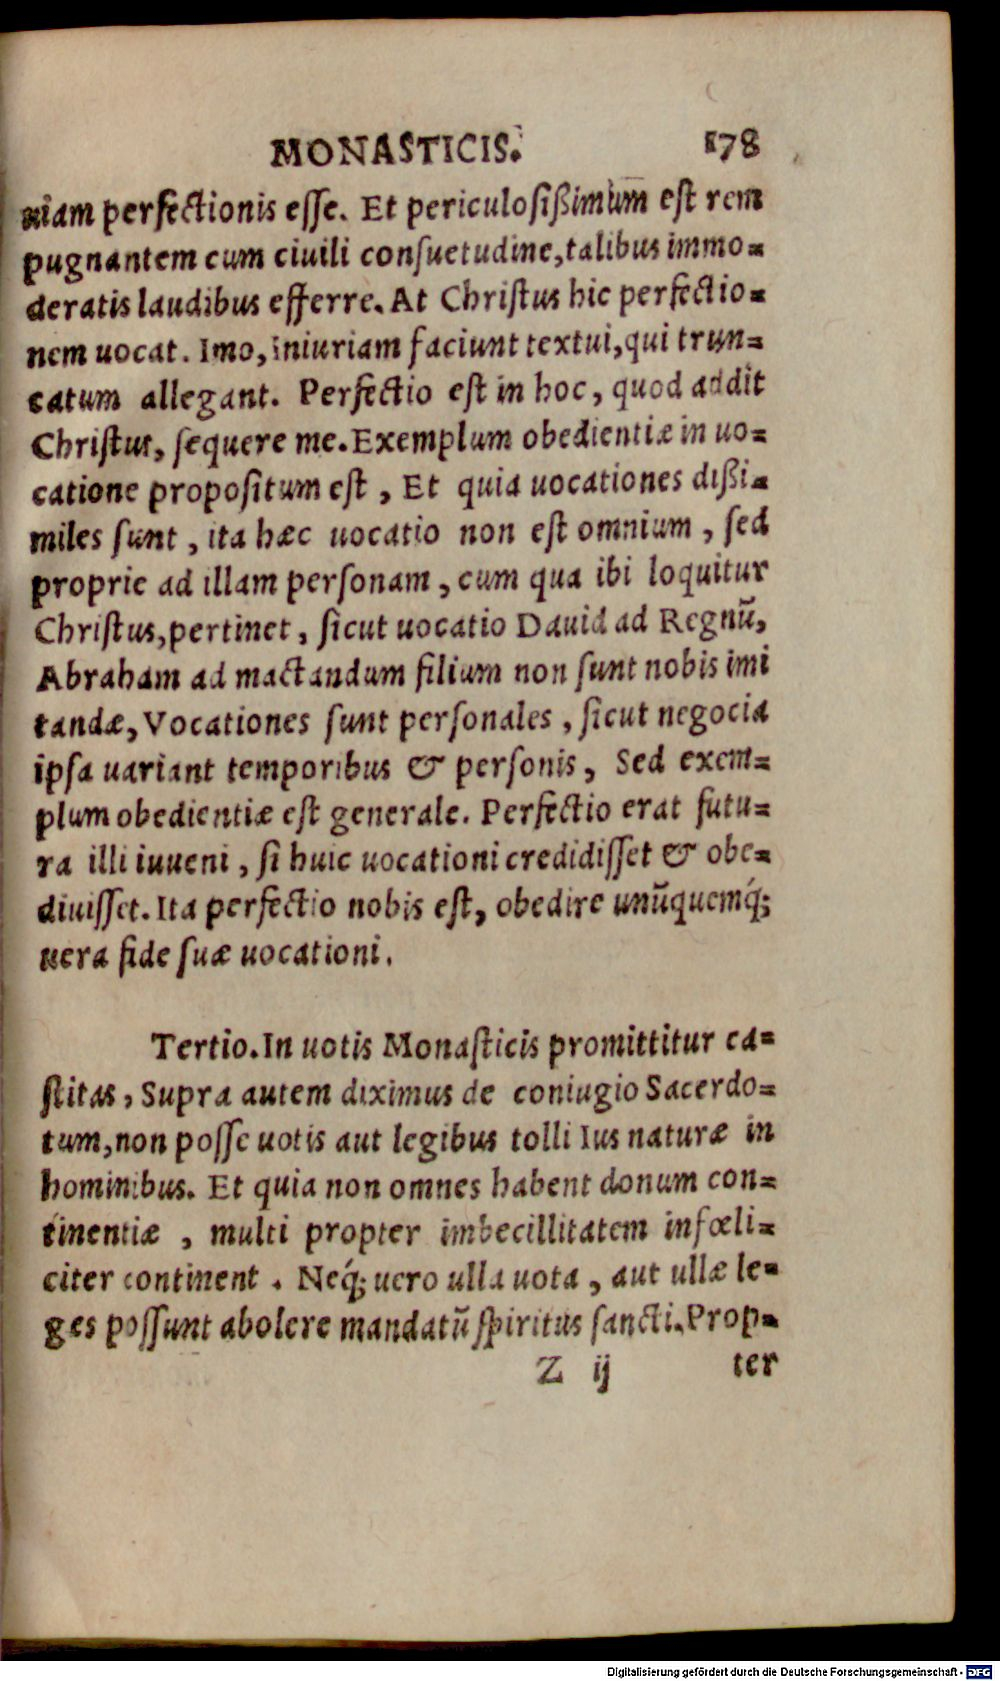 MONASTICIS. 178
niam perfectionis eſſe. Et periculoſißimum eſt rem
pugnantem cum ciuili conſuetudine, talibus immo=
deratis laudibus efferre. At Chriſtus hic perfectio=
nem uocat. Imo, iniuriam faciunt textui, qui trun=
catum allegant. Perfectio eſt in hoc, quod addit
Chriſtus, ſequere me. Exemplum obedientiæ in uo=
catione propoſitum eſt, Et quia uocationes dißi=
miles ſunt, ita hæc uocatio non eſt omnium, ſed
proprie ad illam perſonam, cum qua ibi loquitur
Chriſtus, pertinet, ſicut uocatio Dauid ad Regnū,
Abraham ad mactandum filium non ſunt nobis imi
tandæ, Vocationes ſunt perſonales, ſicut negocia
ipſa uariant temporibus & perſonis, Sed exem=
plum obedientiæ eſt generale. Perfectio erat futu=
ra illi iuueni, ſi huic uocationi credidiſſet & obe=
diuiſſet. Ita perfectio nobis eſt, obedire unūquemq́;
uera fide ſuæ uocationi.
Tertio. In uotis Monaſticis promittitur ca=
ſtitas, Supra autem diximus de coniugio Sacerdo=
tum, non poſſe uotis aut legibus tolli Ius naturæ in
hominibus. Et quia non omnes habent donum con=
tinentiæ, multi propter imbecillitatem infœli=
citer continent. Neq́; uero ulla uota, aut ullæ le=
ges poſſunt abolere mandatū ſpiritus ſancti. Prop=
Z ij ter
Digitalisierung gefördert durch die Deutsche Forschungsgemeinschaft - DFG